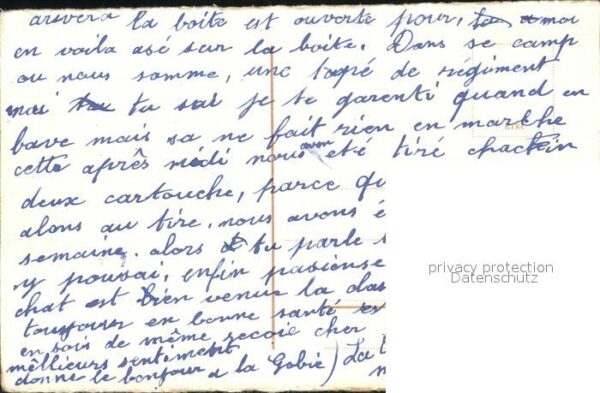 arivera la boite est ouverte pour, moi
en voila asé sur la boite. Dans se camp
ou nous somme, une tapé de régiment
mai tu sai je te garenti quand en
bave mais sa ne fait rien en marche
cette après midi nous avon été tiré chackin
deux cartouche, parce qu
alons au tire. nous avons é
semaine. alors tu parle s
y poussai, enfin pasiense
chat est bien venue la das
toujour en bonne santé es
en sois de même recoie cher
mêllieurs sentiment
donne le bonjour a la Gobie) La
privacy protection
Datenschutz